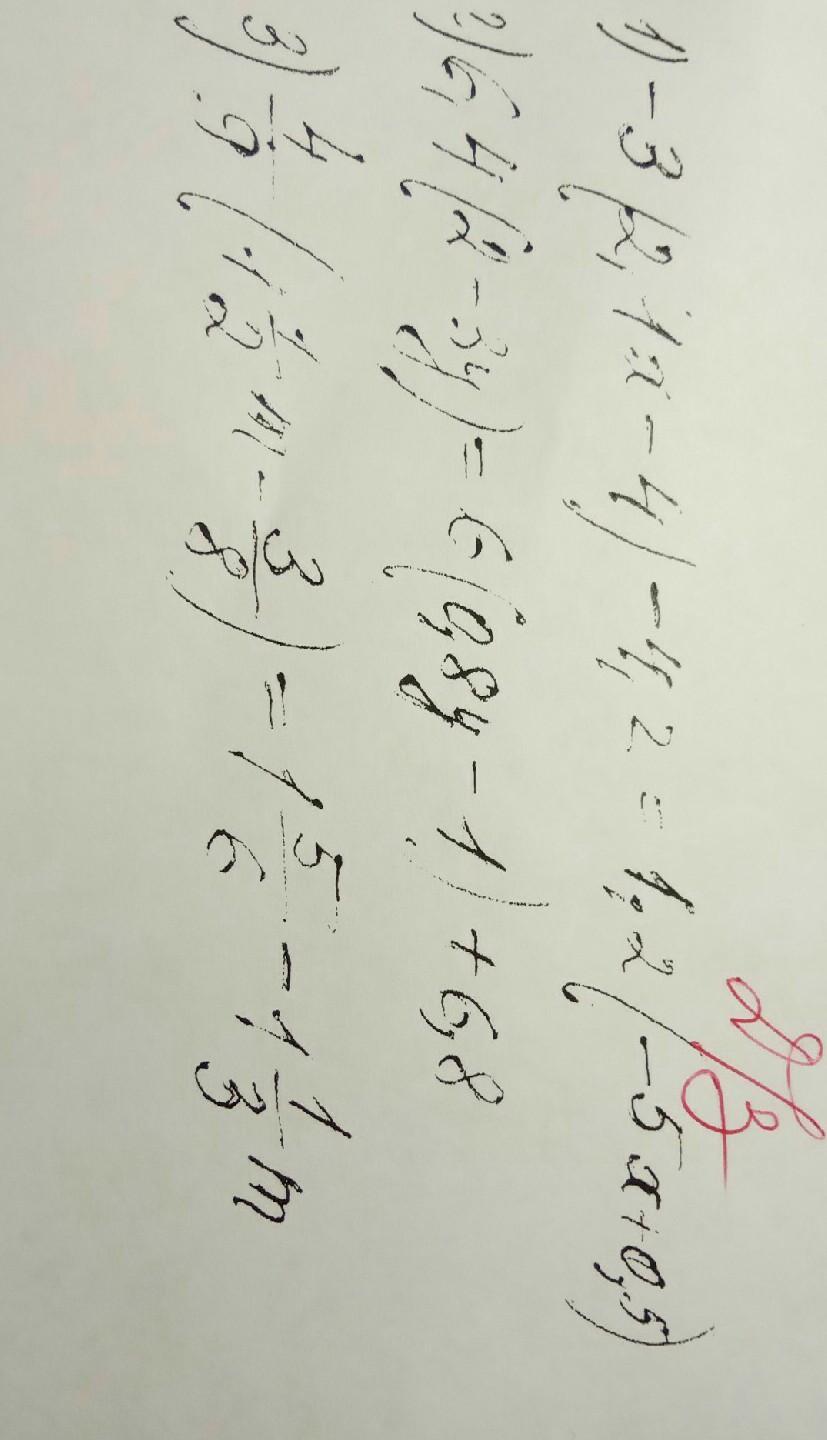 д/з
1) -3(2,1x - 4) - 4,2 = 1,2(-5x + 0,5)
2) 6,4(2 - 3y) = 6(0,8y - 1) + 6,8
3) 4/9 (1 1/2 m - 3/8) = 1 5/6 - 1 1/3 m